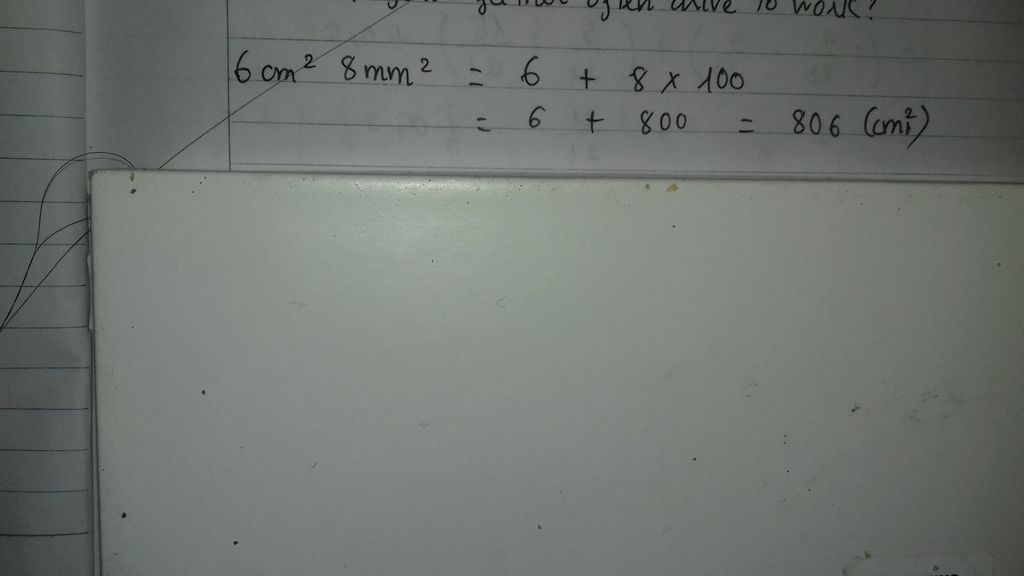 often drive to work?
6 cm² 8 mm² = 6 + 8 x 100
= 6 + 800 = 806 (cm²)